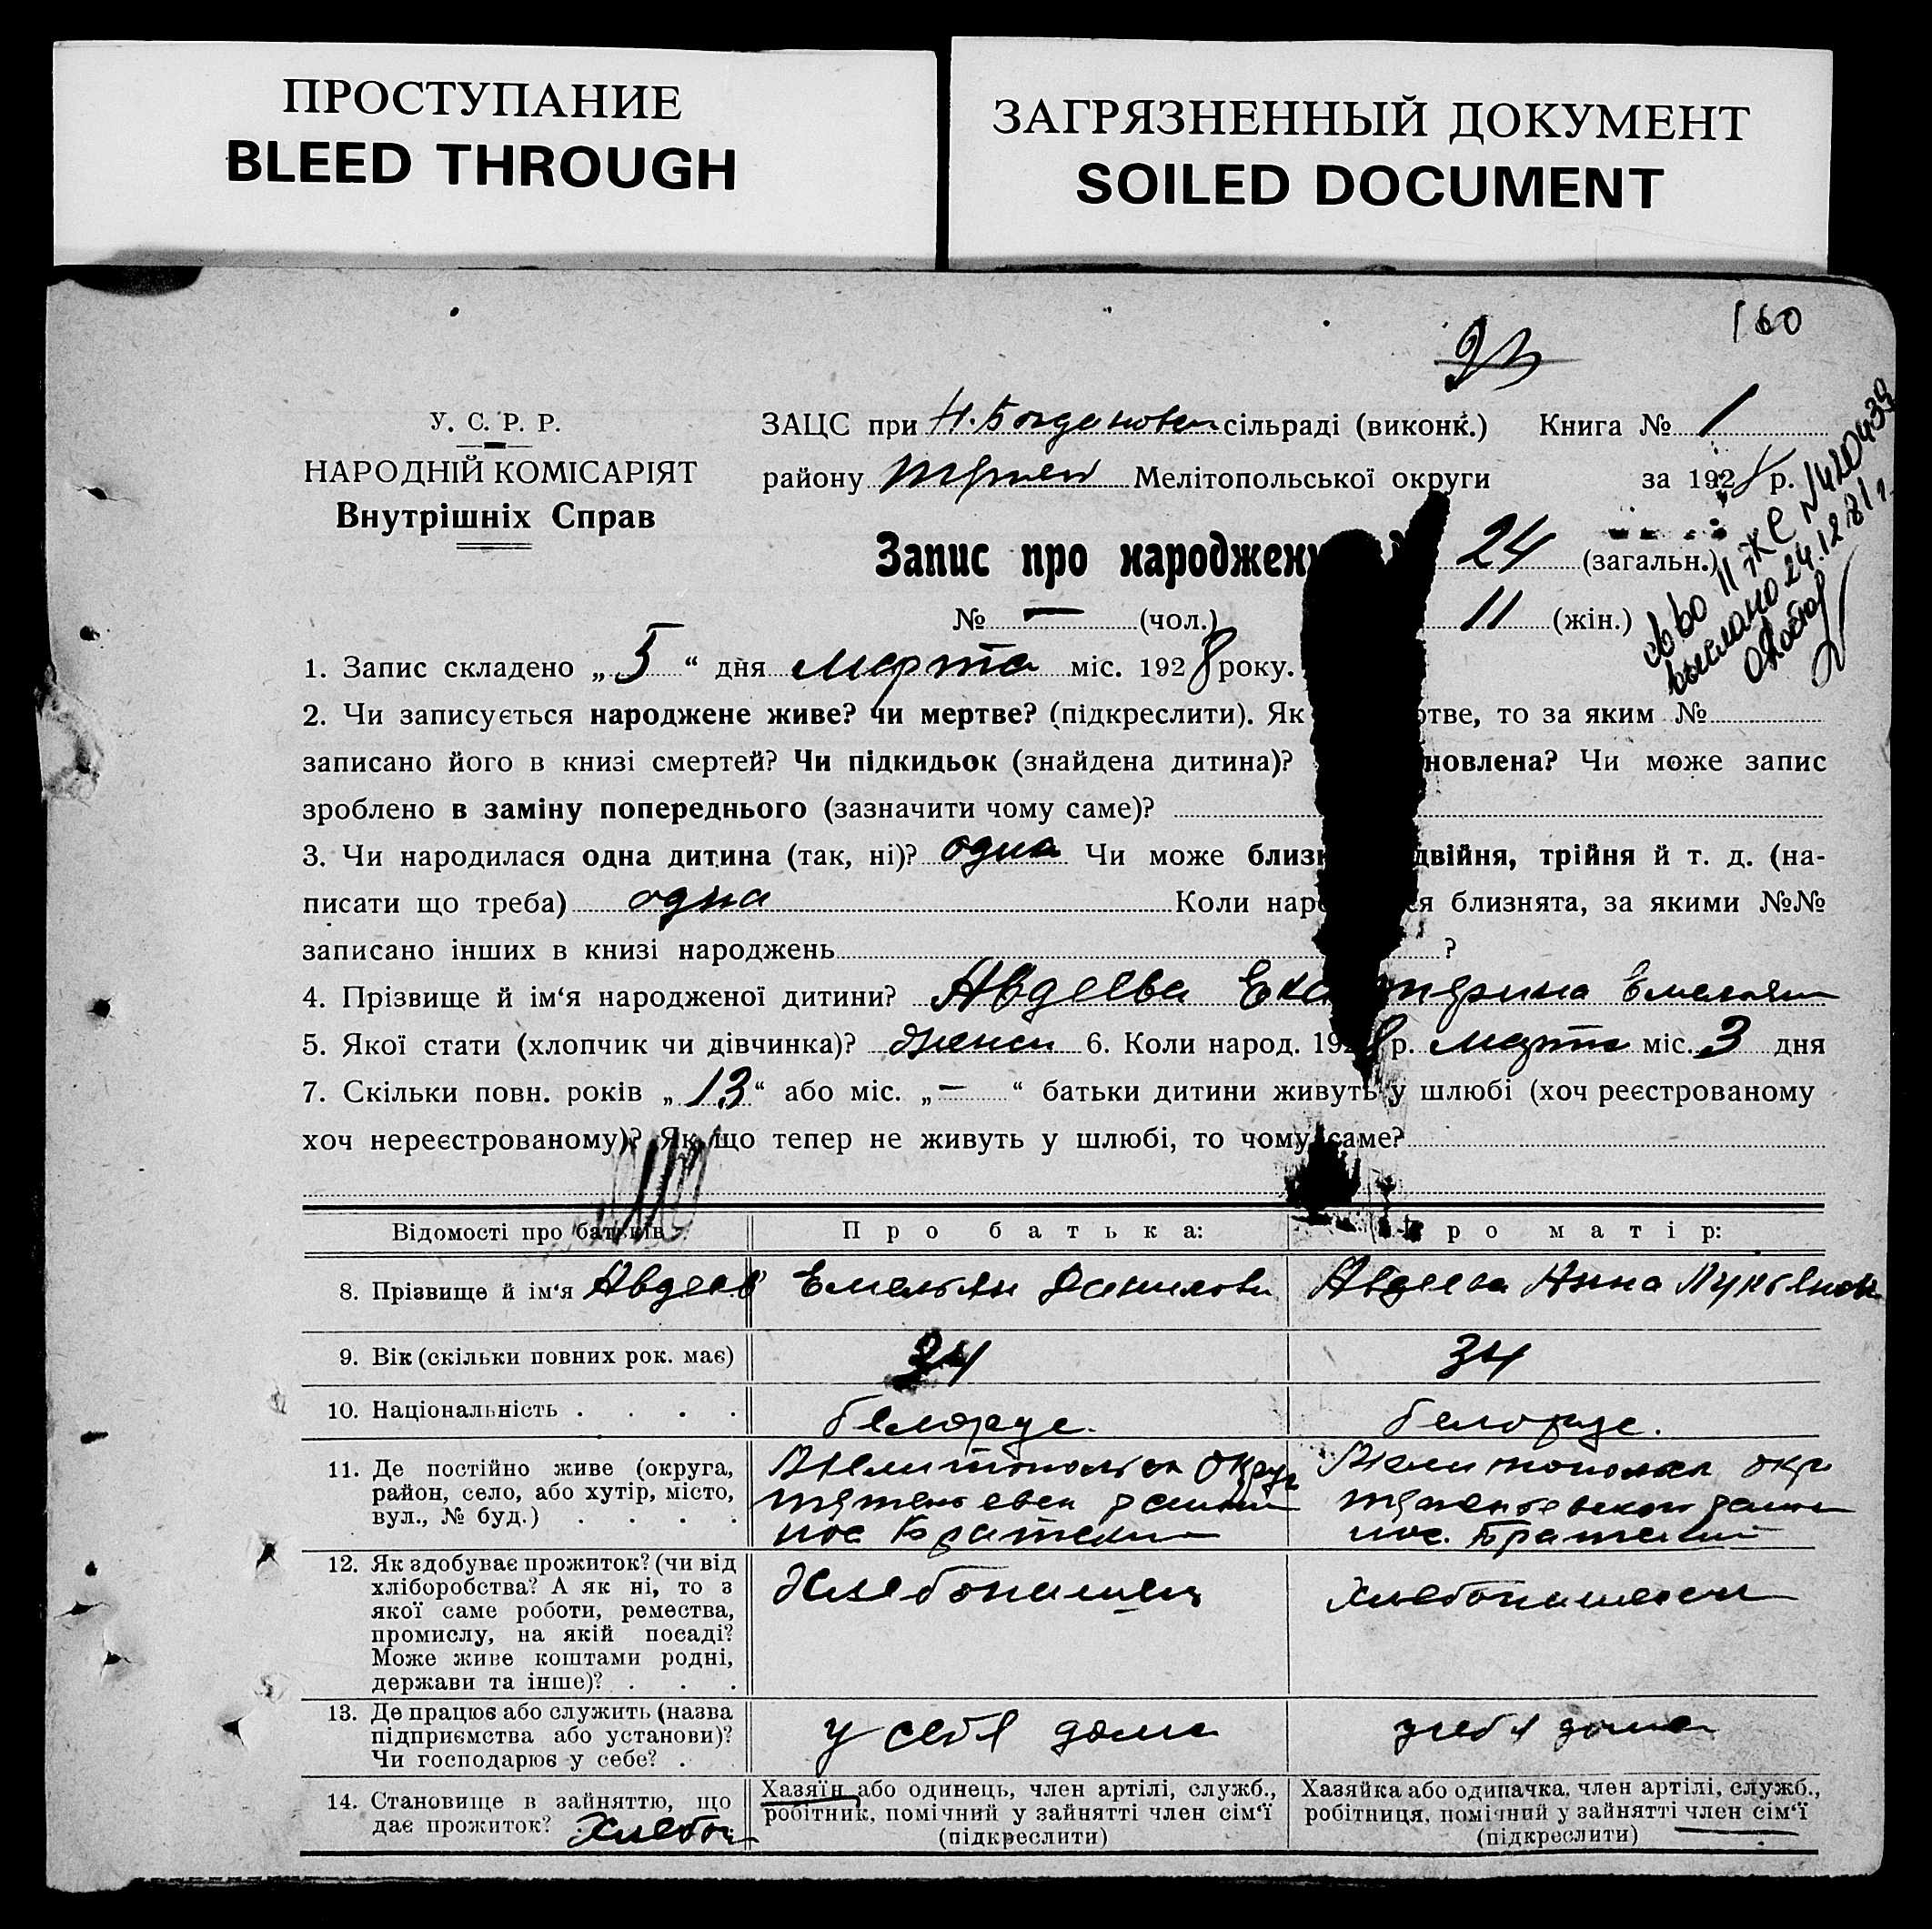 ПРОСТУПАНИЕ
BLEED THROUGH
ЗАГРЯЗНЕННЫЙ ДОКУМЕНТ
SOILED DOCUMENT
160
23
У. С. Р. Р.
НАРОДНІЙ КОМІСАРІЯТ
Внутрішніх Справ
ЗАЦС при Н. Богдановск сільраді (виконк.) Книга № 1
району Мелітопольської округи за 1928 р.
Запис про народжен 24 (загальн.)
№ — (чол.) 11 (жін.)
св во II ЖС № 420439
выслано 24.12.81 г.
1. Запис складено „ 5 “ дня марта міс. 1928 року.
2. Чи записується народжене живе? чи мертве? (підкреслити). Як тве, то за яким №
записано його в книзі смертей? Чи підкидьок (знайдена дитина)? новлена? Чи може запис
зроблено в заміну попереднього (зазначити чому саме)?
3. Чи народилася одна дитина (так, ні)? одна Чи може близ двійня, трійня й т. д. (на-
писати що треба) одна Коли нар я близнята, за якими №№
записано інших в книзі народжень ?
4. Прізвище й ім‘я народженої дитини? Авдеева Екатерина Емельян
5. Якої стати (хлопчик чи дівчинка)? женск 6. Коли народ. 1928 р. марта міс. 3 дня
7. Скільки повн. років „ 13 “ або міс. „ — “ батьки дитини живуть у шлюбі (хоч реєстрованому
хоч нереєстрованому)? Як що тепер не живуть у шлюбі, то чому саме?
Відомості про батьків Про батька: Про матір:
8. Прізвище й ім‘я Авдеев Емельян Данилови Авдеева Анна Лукьянов
9. Вік (скільки повних рок. має) 34 34
10. Національність . . . . белорус. белорус.
11. Де постійно живе (округа,
район, село, або хутір, місто,
вул., № буд.) . . . .
Мелитопольск округ
пос Братский
Мелитопольск окр
пос. Братский
12. Як здобуває прожиток? (чи від
хліборобства? А як ні, то з
якої саме роботи, ремества,
промислу, на якій посаді?
Може живе коштами родні,
держави та інше)? . . .
Хлебопашец
хлебопашест
13. Де працює або служить (назва
підприємства або установи)?
Чи господарює у себе? .
у себя дома
у себя дома
14. Становище в зайняттю, що
дає прожиток? Хлебоп
Хазяїн або одинець, член артілі, служб.,
робітник, помічний у зайнятті член сім‘ї
(підкреслити)
Хазяйка або одиначка, член артілі, служб.,
робітниця, помічний у зайнятті член сім‘ї
(підкреслити)